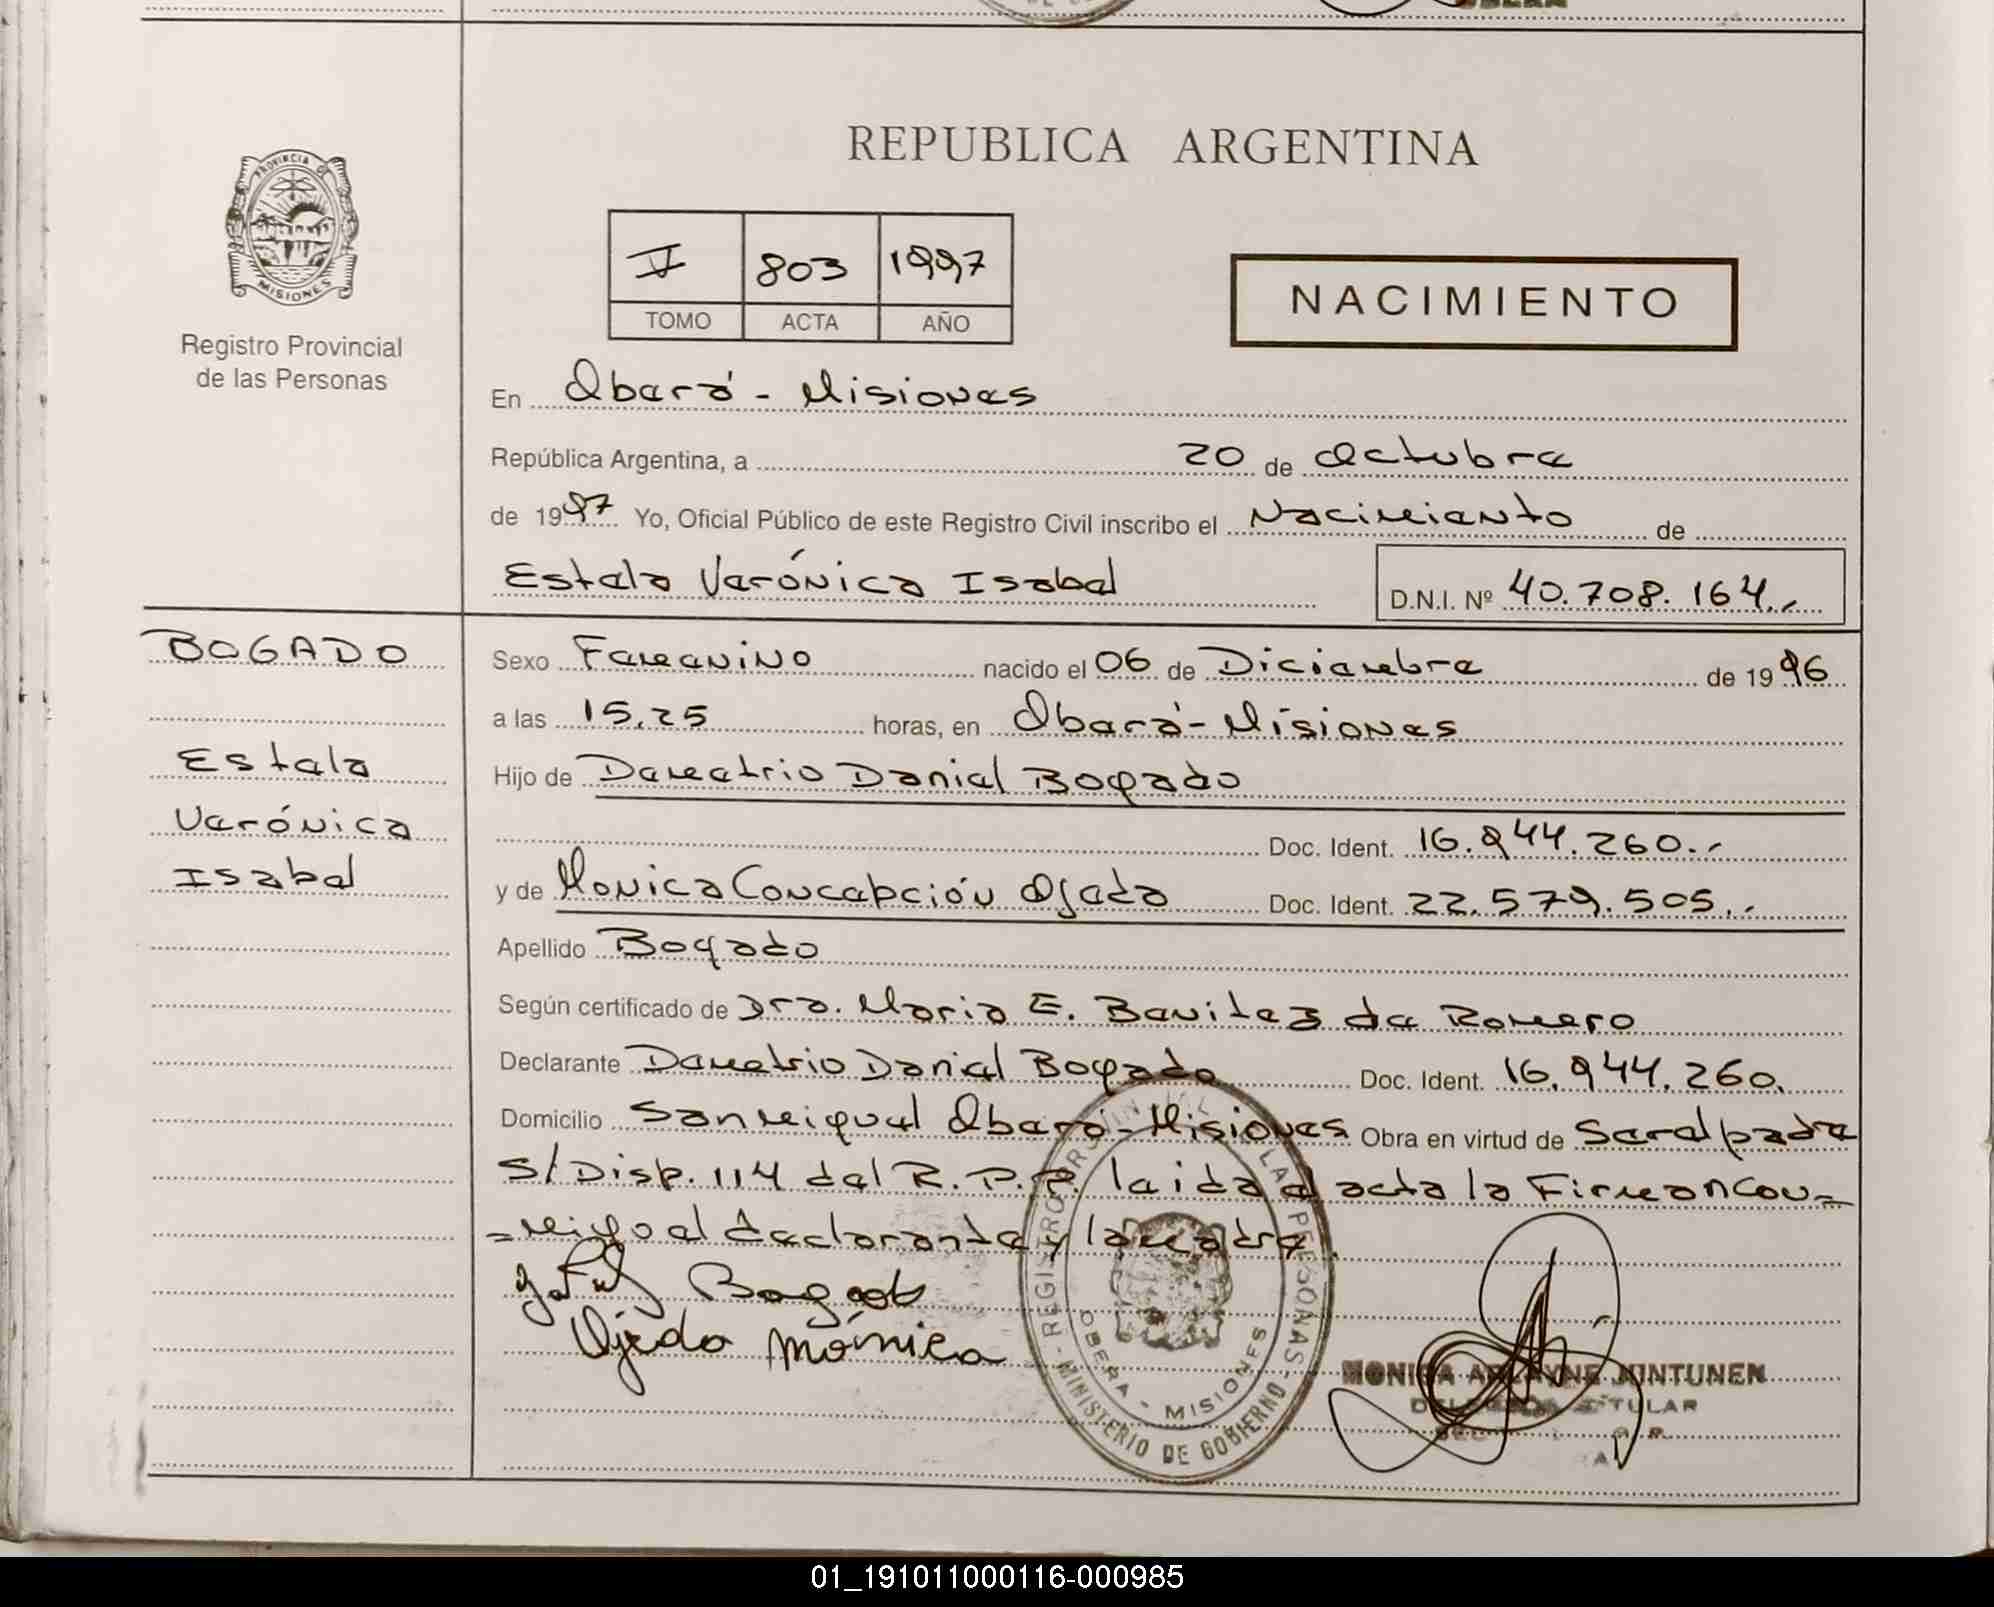 REPUBLICA ARGENTINA
PROVINCIA DE
MISIONES
Registro Provincial
de las Personas
V 803 1997
TOMO ACTA AÑO
NACIMIENTO
En Oberá - Misiones
República Argentina, a 20 de Octubre
de 1997 Yo, Oficial Público de este Registro Civil inscribo el Nacimiento de
Estela Verónica Isabel D.N.I. Nº 40.708.164.-
BOGADO
Estela
Verónica
Isabel
Sexo Femenino nacido el 06 de Diciembre de 1996
a las 15.25 horas, en Oberá - Misiones
Hijo de Demetrio Daniel Bogado
Doc. Ident. 16.944.260.-
y de Monica Concepción Ojeda Doc. Ident. 22.579.505.-
Apellido Bogado
Según certificado de Dra. Maria E. Benitez de Romero
Declarante Demetrio Daniel Bogado Doc. Ident. 16.944.260.
Domicilio San Miguel Oberá - Misiones Obra en virtud de Ser el padre
S/Disp. 114 del R.P.P. leida el acta la Firman con-
=migo el declarante y la madre.
Bogado
Ojeda Mónica
REGISTRO PROVINCIAL DE LAS PERSONAS
OBERA - MISIONES
- MINISTERIO DE GOBIERNO -
MONICA JUNTUNEN
TITULAR
01_191011000116-000985